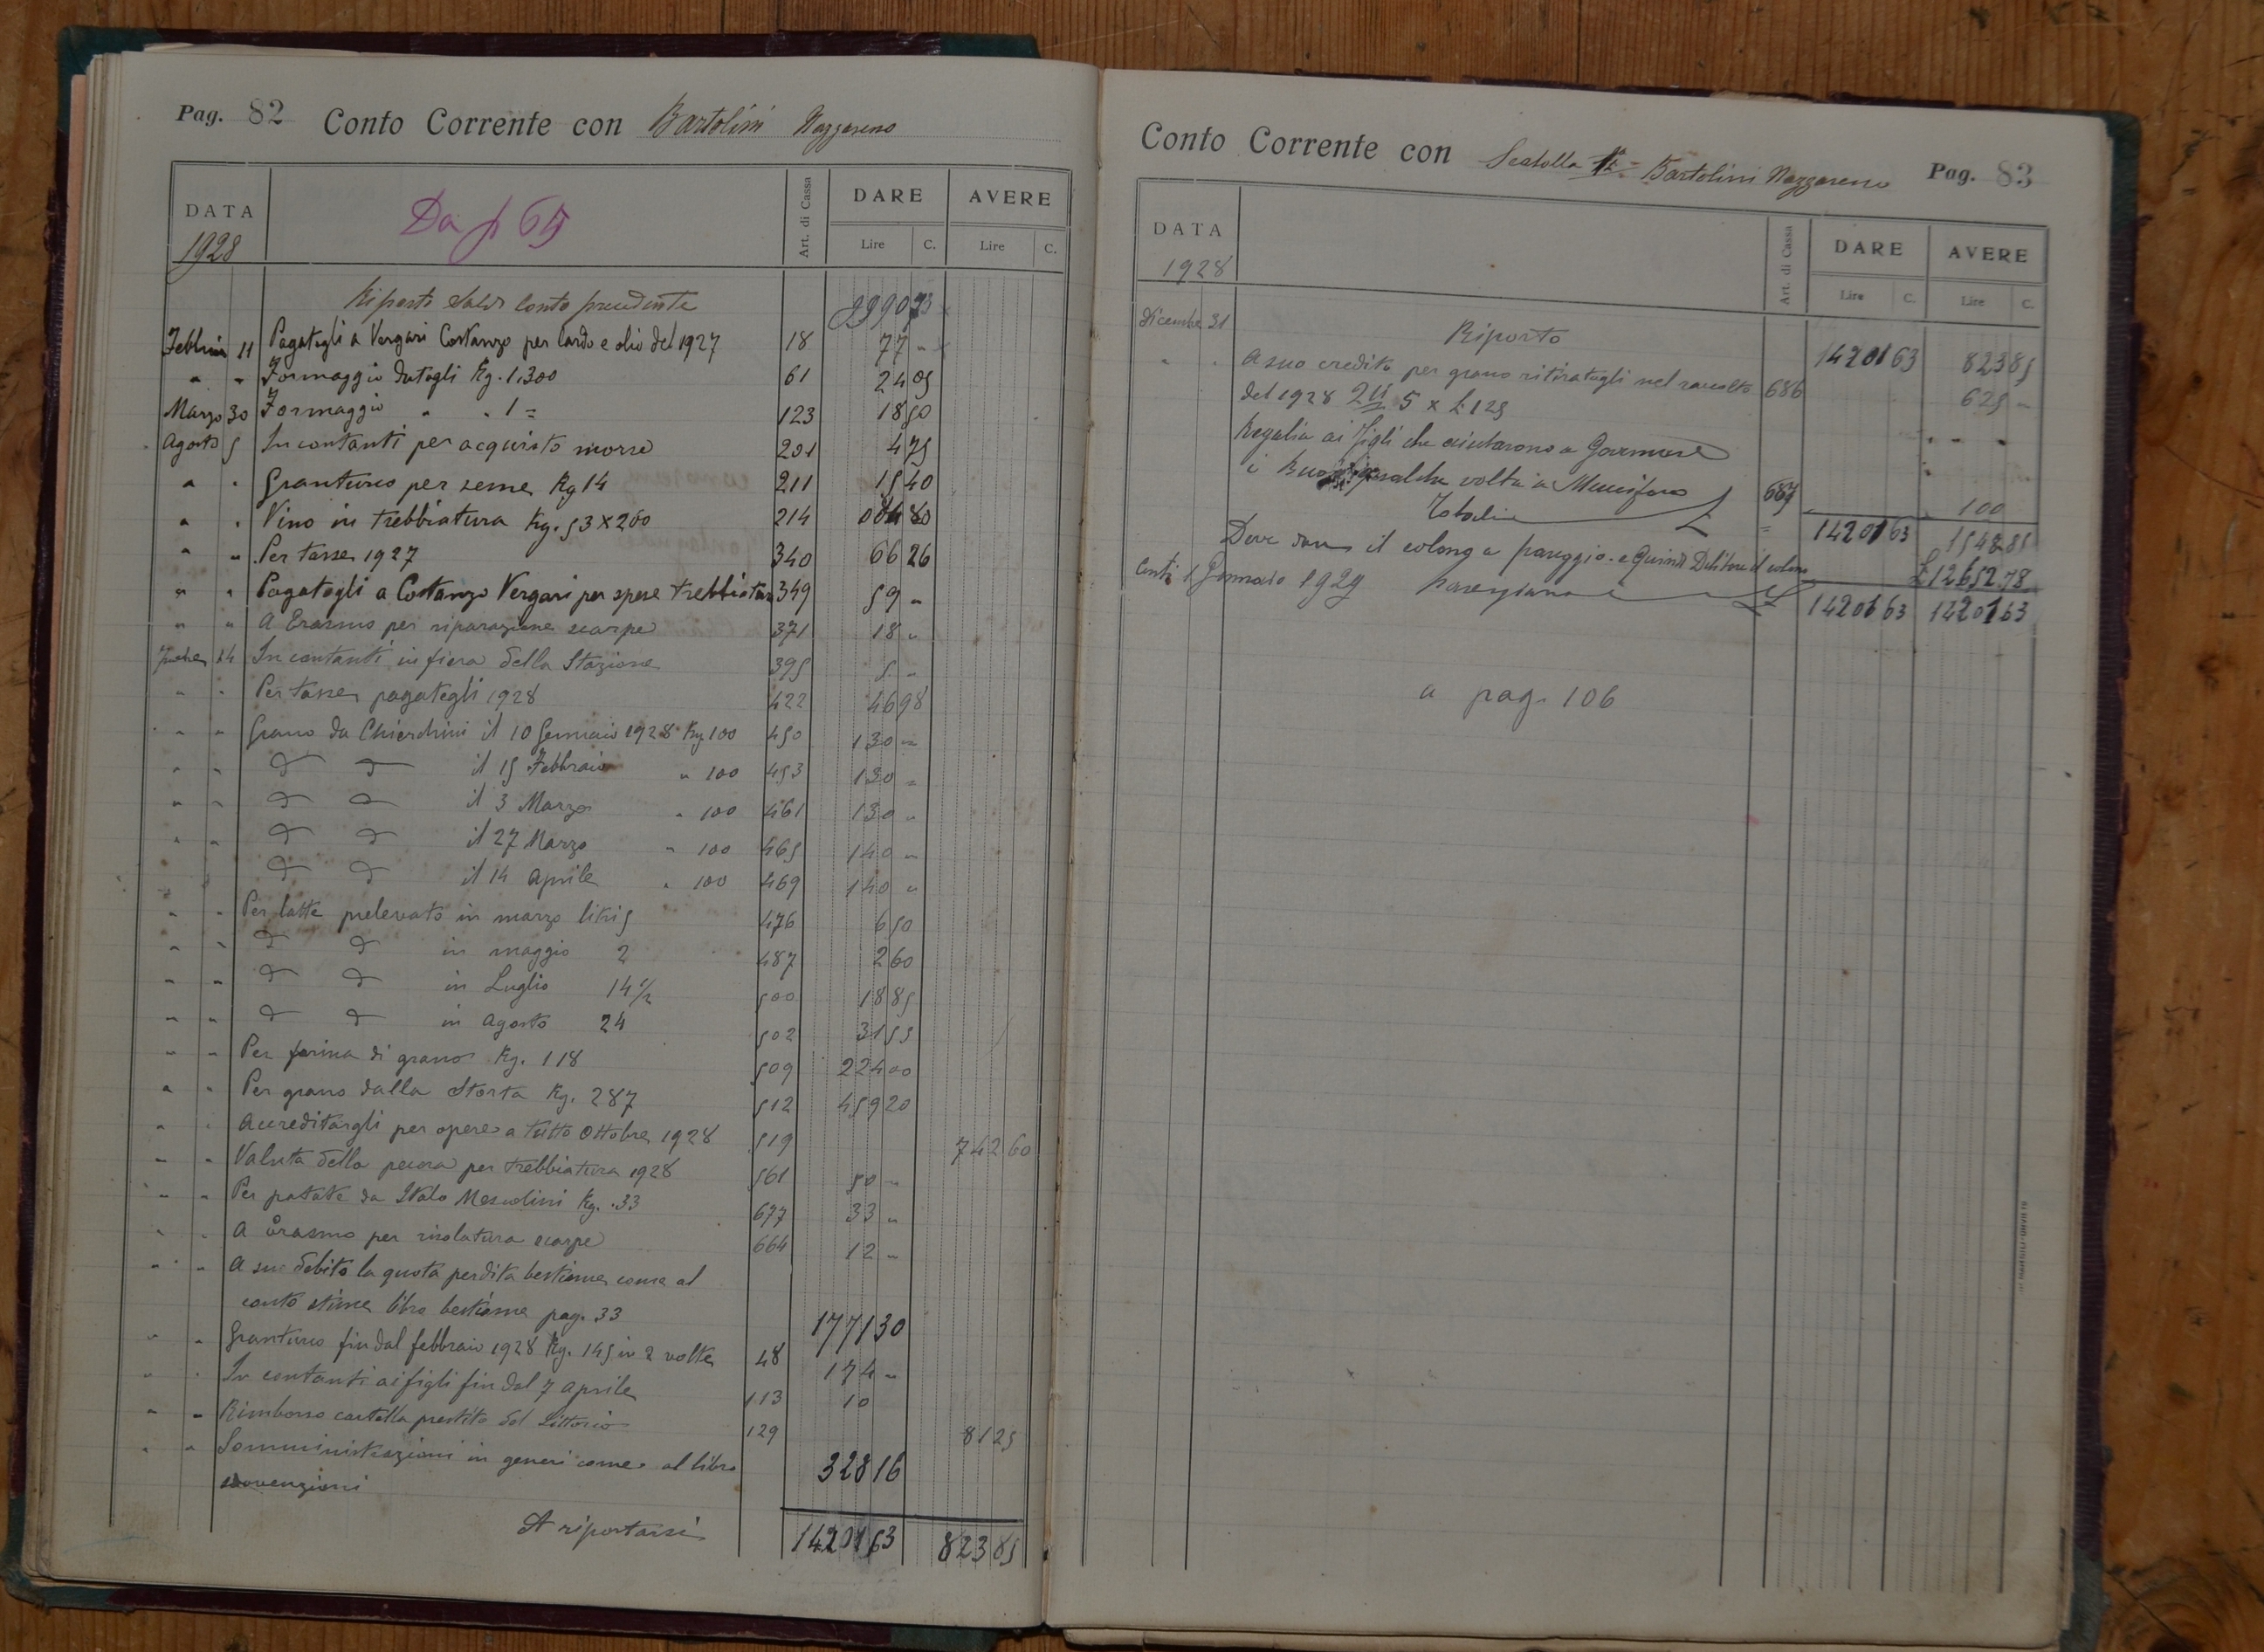 Pag. 82 Conto Corrente con Bartolini Nazzareno
DATA Da p 65 Art. di Cassa DARE AVERE
1928 Lire C. Lire C.
Riporto Saldo Conto precedente 9990 93
Febbraio 11 Pagategli a Vergari Costanzo per lardo e olio del 1927 18 77 "
" " Formaggio datogli Kg. 1,300 61 24 05
Marzo 30 Formaggio " " 1 = 123 18 50
Agosto 5 In contanti per acquisto morse 201 4 75
" " Granturco per seme Kg 14 211 15 40
" " Vino in trebbiatura Kg. 53 x 260 214 80
" " Per tasse 1927 340 66 26
" " Pagategli a Costanzo Vergari per spese trebbiatura 349 59 "
" " A Erasmo per riparazione scarpe 371 18 "
14 In contanti in fiera della Stazione 395 5 "
" " Per tasse pagategli 1928 422 46 98
" " Grano da Chierchini il 10 Gennaio 1928 Kg 100 450 130 "
" " il 15 Febbraio " 100 453 130 "
" " il 3 Marzo " 100 461 130 "
" " il 27 Marzo " 100 465 140 "
" " il 14 Aprile " 100 469 140 "
" " Per latte prelevato in marzo litri 5 476 6 50
" " in maggio 2 487 2 60
" " in Luglio 14 1/2 500 18 85
" " in Agosto 24 502 31 55
" " Per farina di grano Kg. 118 509 224 00
" " Per grano dalla Storta Kg. 287 512 459 20
" " Accreditargli per opere a tutto Ottobre 1928 519 742 60
" " Valuta della pecora per trebbiatura 1928 561 50 "
" " Per patate da Italo Mescolini Kg. 33 677 33 "
" " A Erasmo per risolatura scarpe 664 12 "
" " A suo debito la quota perdita bestiame come al
conto stime libro bestiame pag. 33 1771 30
" " Granturco fin dal febbraio 1928 Kg. 145 in 2 volte 48 174 "
" " In contanti ai figli fin dal 7 Aprile 113 10
" " Rimborso cartella prestito del Littorio 129 81 25
" " Somministrazioni in generi come al libro
sovvenzioni 328 16
A riportarsi 14201 63 823 85
Conto Corrente con Bartolini Nazzareno Pag. 83
DATA Art. di Cassa DARE AVERE
1928 Lire C. Lire C.
Dicembre 31 Riporto 14201 63 823 85
" " A suo credito per grano ritiratogli nel raccolto 686 625 "
del 1928 5 x £ 125
Regalia ai figli che aiutarono a Governare
i qualche volta a 687 100
Totali = 14201 63 1548 85
Deve dare il colono a pareggio e Quindi Debitore il colono £ 12652 78
Conti 1 Gennaio 1929 14201 63 14201 63
a pag. 106